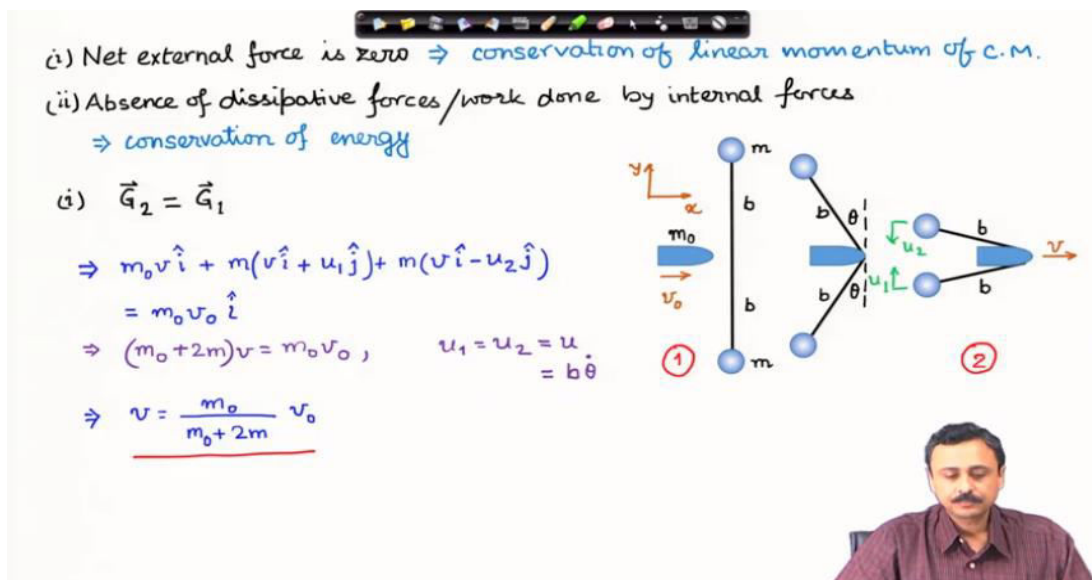 (i) Net external force is zero ⇒ conservation of linear momentum of C.M.
(ii) Absence of dissipative forces/work done by internal forces
⇒ conservation of energy
(i) G⃗₂ = G⃗₁
⇒ m₀v î + m(v î + u₁ ĵ) + m(v î - u₂ ĵ)
= m₀v₀ î
⇒ (m₀+2m)v = m₀v₀ , u₁ = u₂ = u
= bθ̇
⇒ v = m₀/(m₀+2m) v₀
y
x
m₀
v₀
m
b
b
m
①
b
θ
b
θ
u₂
u₁
b
b
v
②